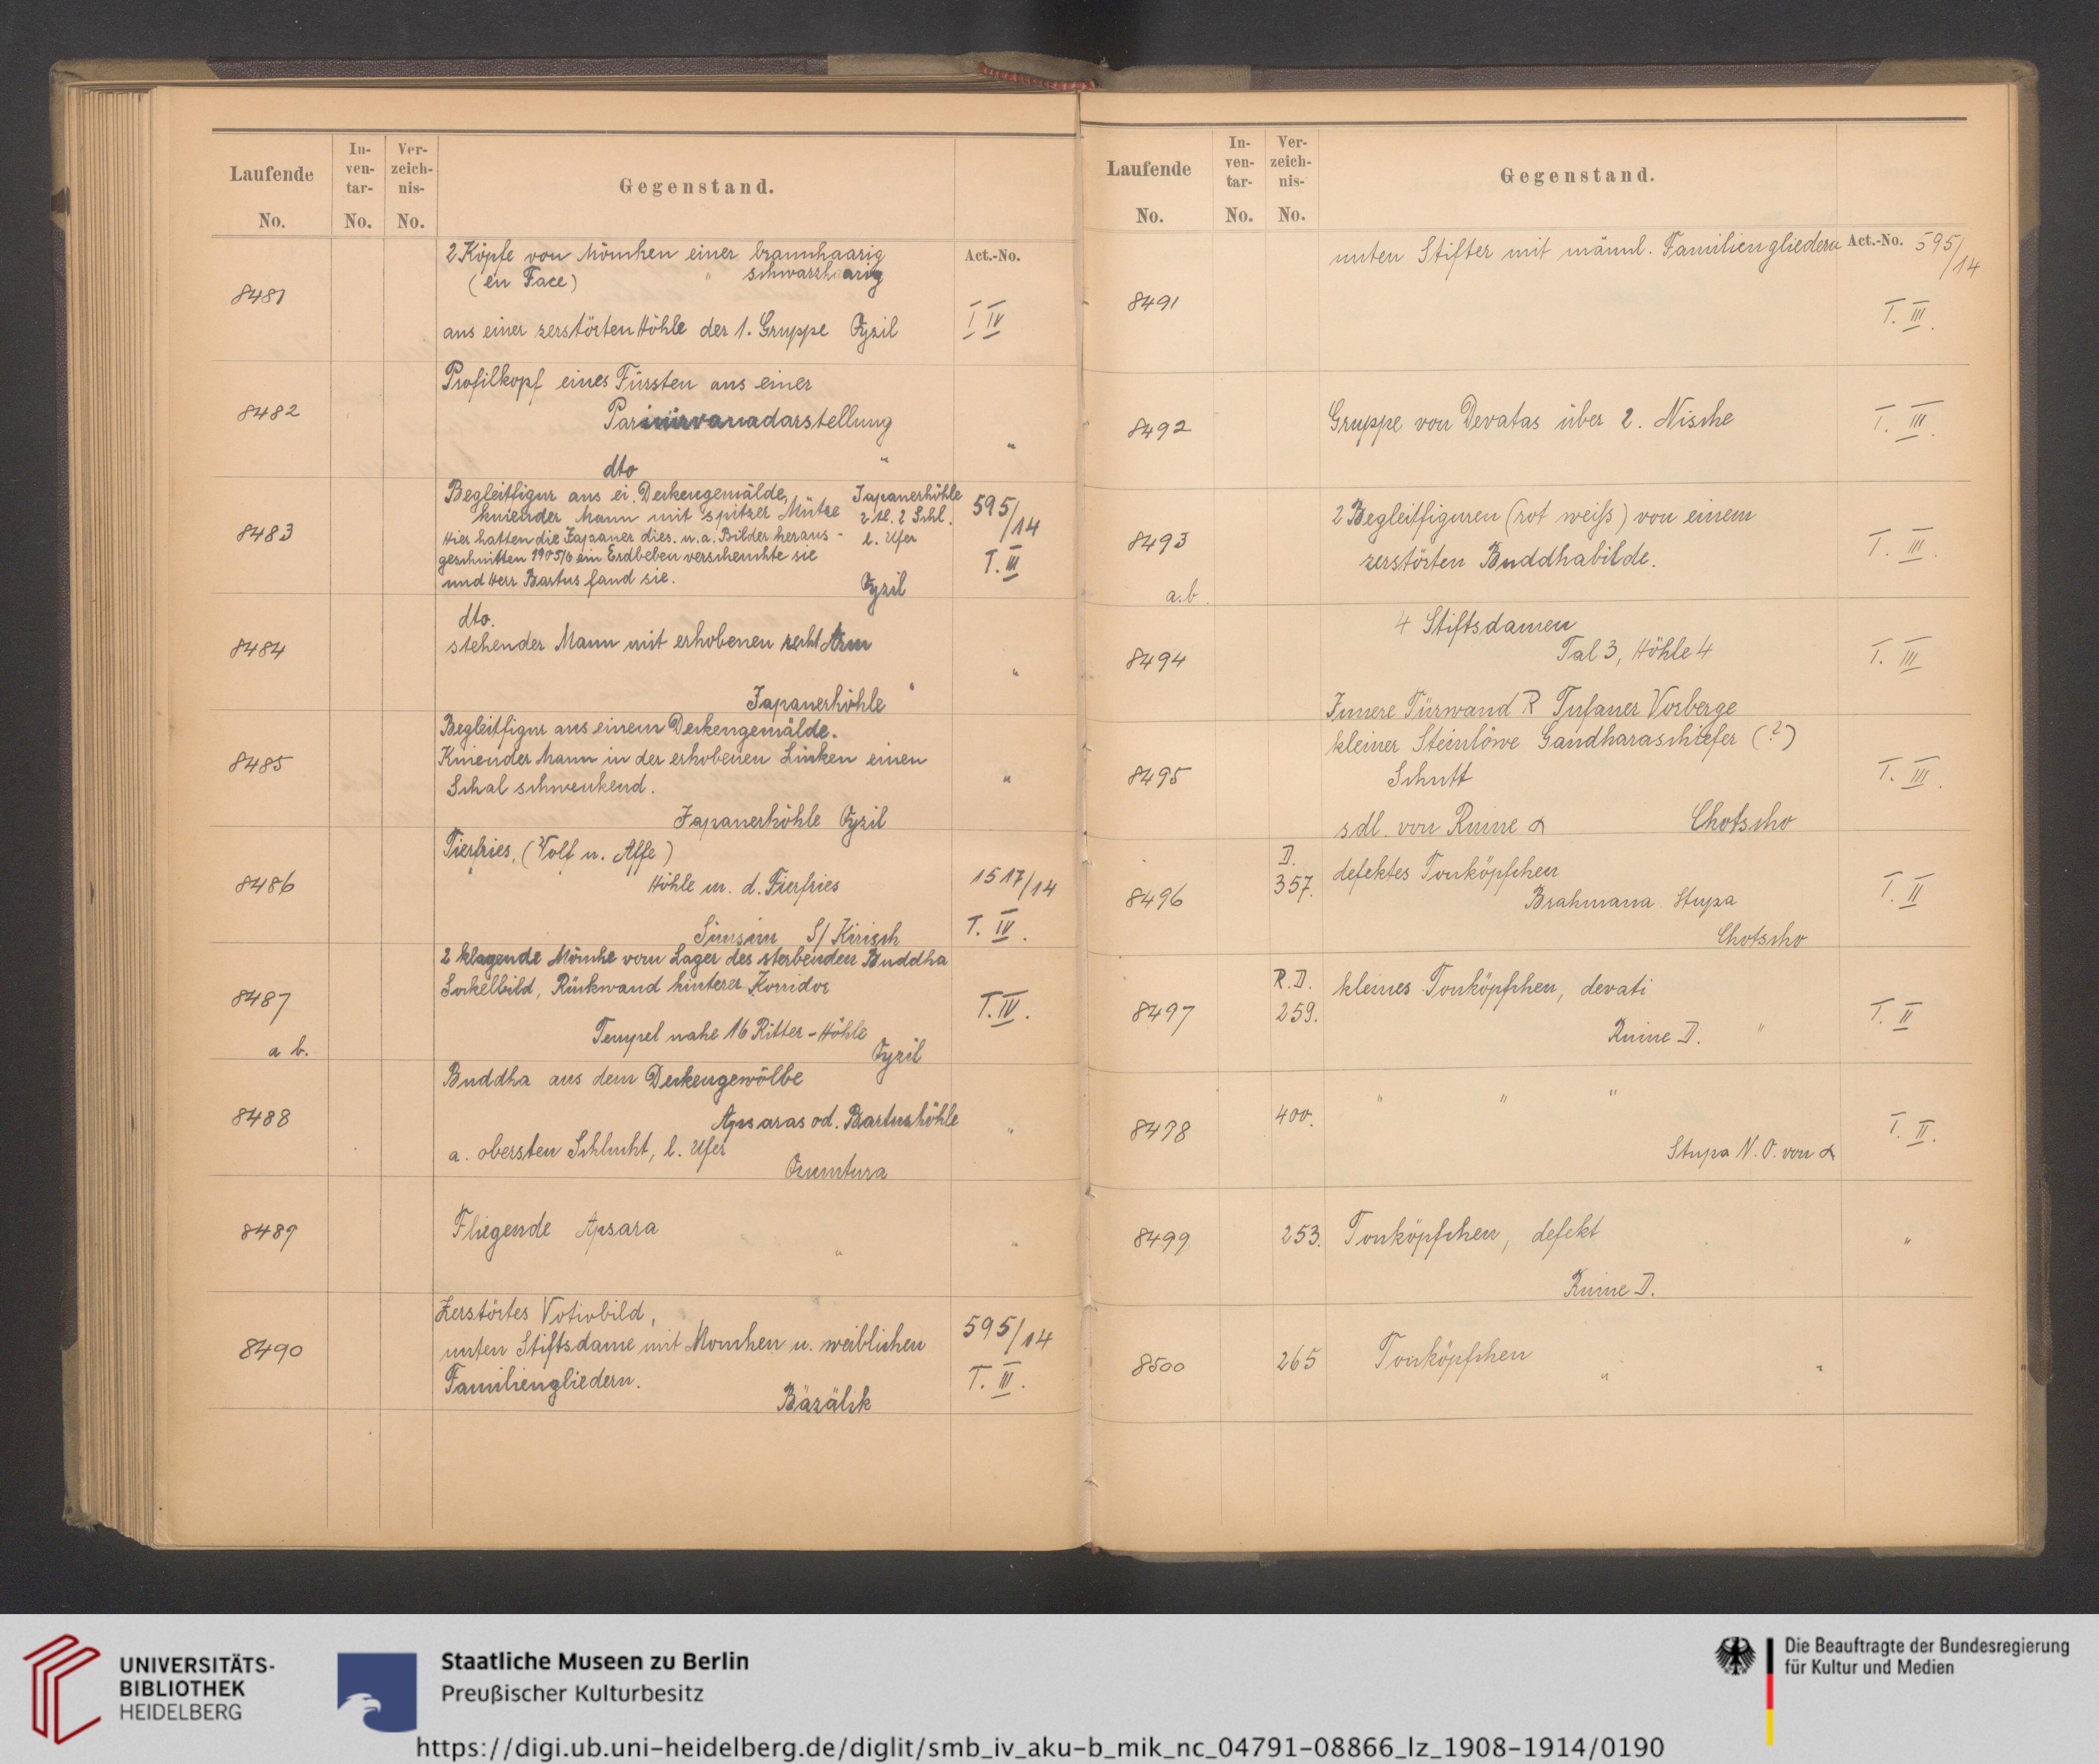 Laufende No.
In-ven-tar- No.
Ver-zeich-nis- No.
Gegenstand.
Act.-No.
8481
2 Köpfe von Mönchen einer braunhaarig
(en Face) " schwarzhaarig
aus einer zerstörten Höhle der 1. Gruppe Qyzil
T IV
8482
Profilkopf eines Fürsten aus einer
Parinirvanadarstellung
dto " "
8483
Begleitfigur aus ei. Deckengemälde, Japanerhöhle
kniender Mann mit spitzer Mütze 2 kl. 2 Schl.
Hier hatten die Japaner dies. u. a. Bilder heraus- l. Ufer
geschnitten 1905/6 ein Erdbeben verscheuchte sie
und Herr Bartus fand sie. Qyzil
595/14
T. III
8484
dto.
stehender Mann mit erhobenen recht Arm
Japanerhöhle "
"
8485
Begleitfigur aus einem Deckengemälde.
Kniender Mann in der erhobenen Linken einen
Schal schwenkend.
Japanerhöhle Qyzil
"
8486
Tierfries, (Wolf u. Affe)
Höhle m. d. Tierfries
Simsim S/ Kirisch
1517/14
T. IV.
8487
a b.
2 klagende Mönche vom Lager des sterbenden Buddha
Sockelbild, Rückwand hinterer Korridor
Tempel nahe 16 Ritter-Höhle
Qyzil
T. IV.
8488
Buddha aus dem Deckengewölbe
Apsaras od. Bartushöhle
a. obersten Schlucht, l. Ufer
Qumtura
"
8489
Fliegende Apsara
" "
8490
Zerstörtes Votivbild,
unten Stiftsdame mit Mönchen u. weiblichen
Familiengliedern.
Bäzälik
595/14
T. III.
Laufende No.
In-ven-tar- No.
Ver-zeich-nis- No.
Gegenstand.
Act.-No. 595/14
8491
unten Stifter mit männl. Familiengliedern
T. III.
8492
Gruppe von Devatas über 2. Nische
T. III.
8493
a. b.
2 Begleitfiguren (rot weiß) von einem
zerstörten Buddhabilde.
T. III.
8494
4 Stiftsdamen
Tal 3, Höhle 4
Innere Türwand R Tufaner Vorberge
T. III
8495
kleiner Steinlöwe Gandharaschiefer (?)
Schutt
sdl. von Ruine α Chotscho
T. III.
8496
D. 357.
defektes Tonköpfchen
Brahmana Stupa
Chotscho
T. II
8497
R. D. 259.
kleines Tonköpfchen, devati
Ruine D. "
T. II
8498
400.
" " "
Stupa N. O. von α
T. II.
8499
253.
Tonköpfchen, defekt
Ruine D.
"
8500
265
Tonköpfchen
" "
UNIVERSITÄTS-
BIBLIOTHEK
HEIDELBERG
Staatliche Museen zu Berlin
Preußischer Kulturbesitz
Die Beauftragte der Bundesregierung
für Kultur und Medien
https://digi.ub.uni-heidelberg.de/diglit/smb_iv_aku-b_mik_nc_04791-08866_lz_1908-1914/0190